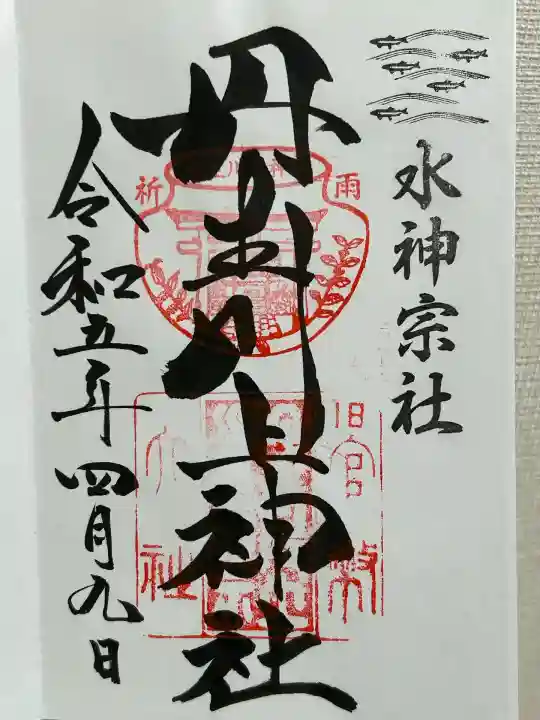 水神宗社
丹生川上神社
雨
祈
旧官幣
大社
令和五年四月九日